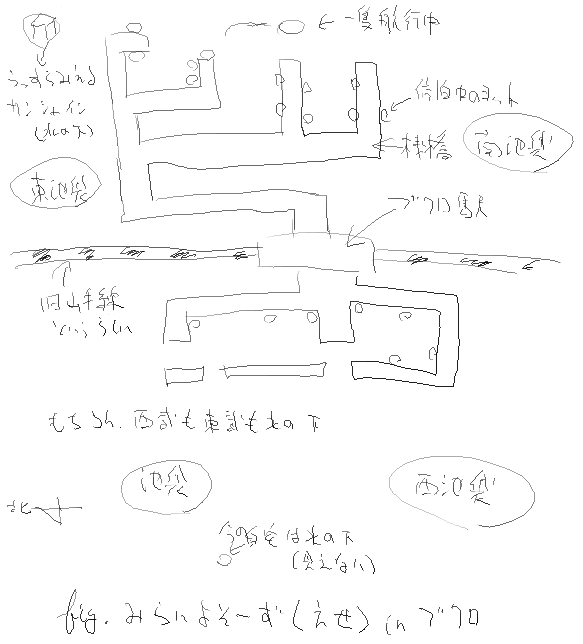 一隻航行中
うっすらみえる
サンシャイン
(水の下)
停泊中のヨット
桟橋
南池袋
東池袋
ブクロ駅
旧山手線
というらしい
もちろん、西武も東武も水の下
池袋
西池袋
北
今の自宅は水の下
(見えない)
fig. みらいよそーず(えせ) in ブクロ